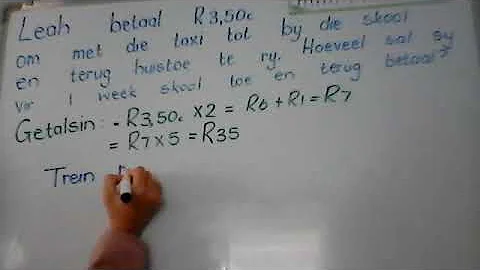 Leah betaal R3,50c
om met die taxi tot by die skool
en terug huistoe te ry. Hoeveel sal sy
vir 1 week skool toe en terug betaal?
Getalsin: - R3,50c x2 = R6 + R1 = R7
= R7 x 5 = R35
Trein